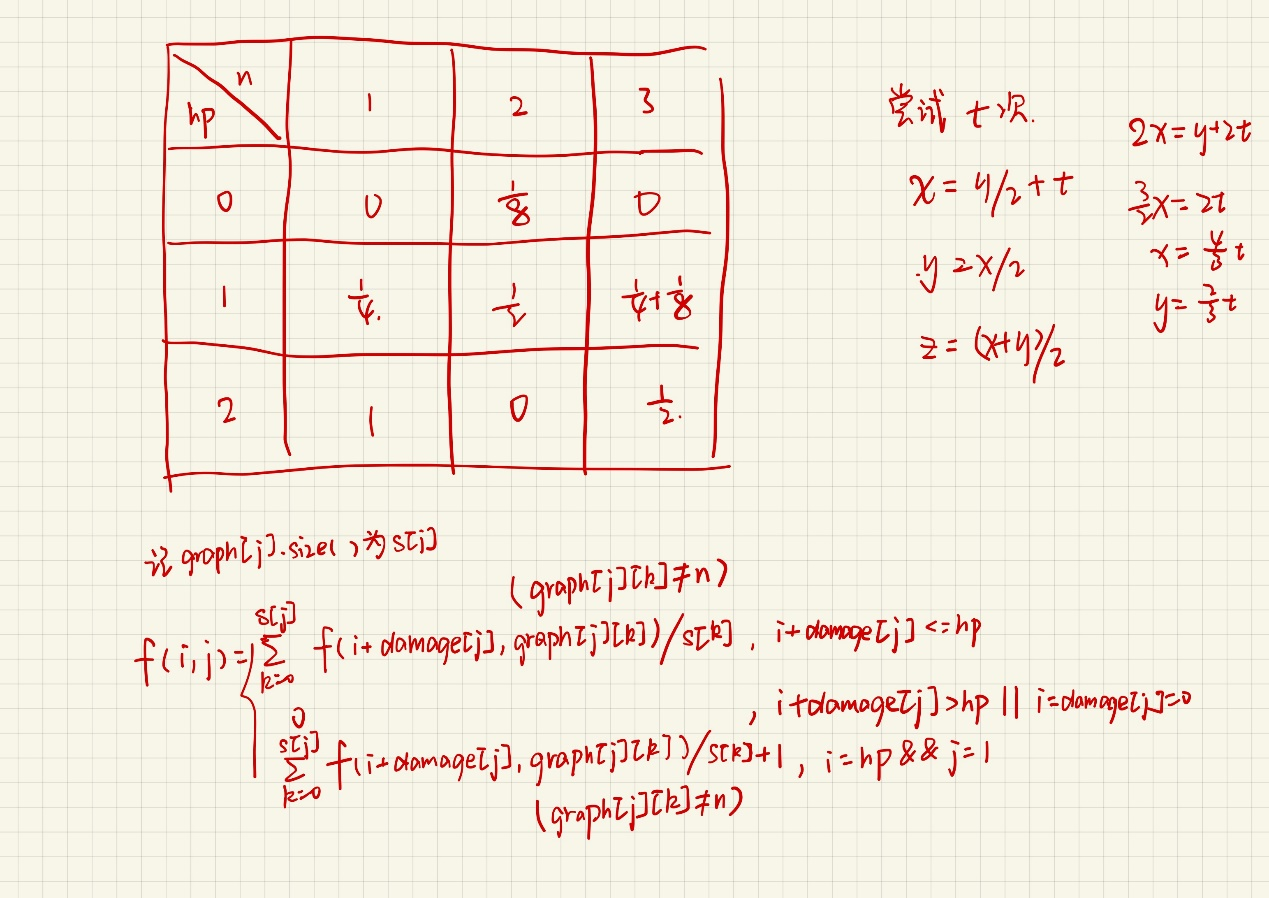 n
hp
1 2 3
0 0 1/8 0
1 1/4. 1/2 1/4+1/8
2 1 0 1/2.
尝试 t次.
x = y/2 + t
y = x/2
z = (x+y)/2
2x = y+2t
3/2x = 2t
x = 4/3 t
y = 2/3 t
记 graph[j].size()为s[j]
(graph[j][k]≠n)
f(i,j) = { ∑_{k=0}^{s[j]} f(i+damage[j], graph[j][k])/s[k] , i+damage[j]<=hp
0 , i+damage[j]>hp || i=damage[j]=0
∑_{k=0}^{s[j]} f(i+damage[j], graph[j][k])/s[k]+1 , i=hp && j=1
(graph[j][k]≠n)